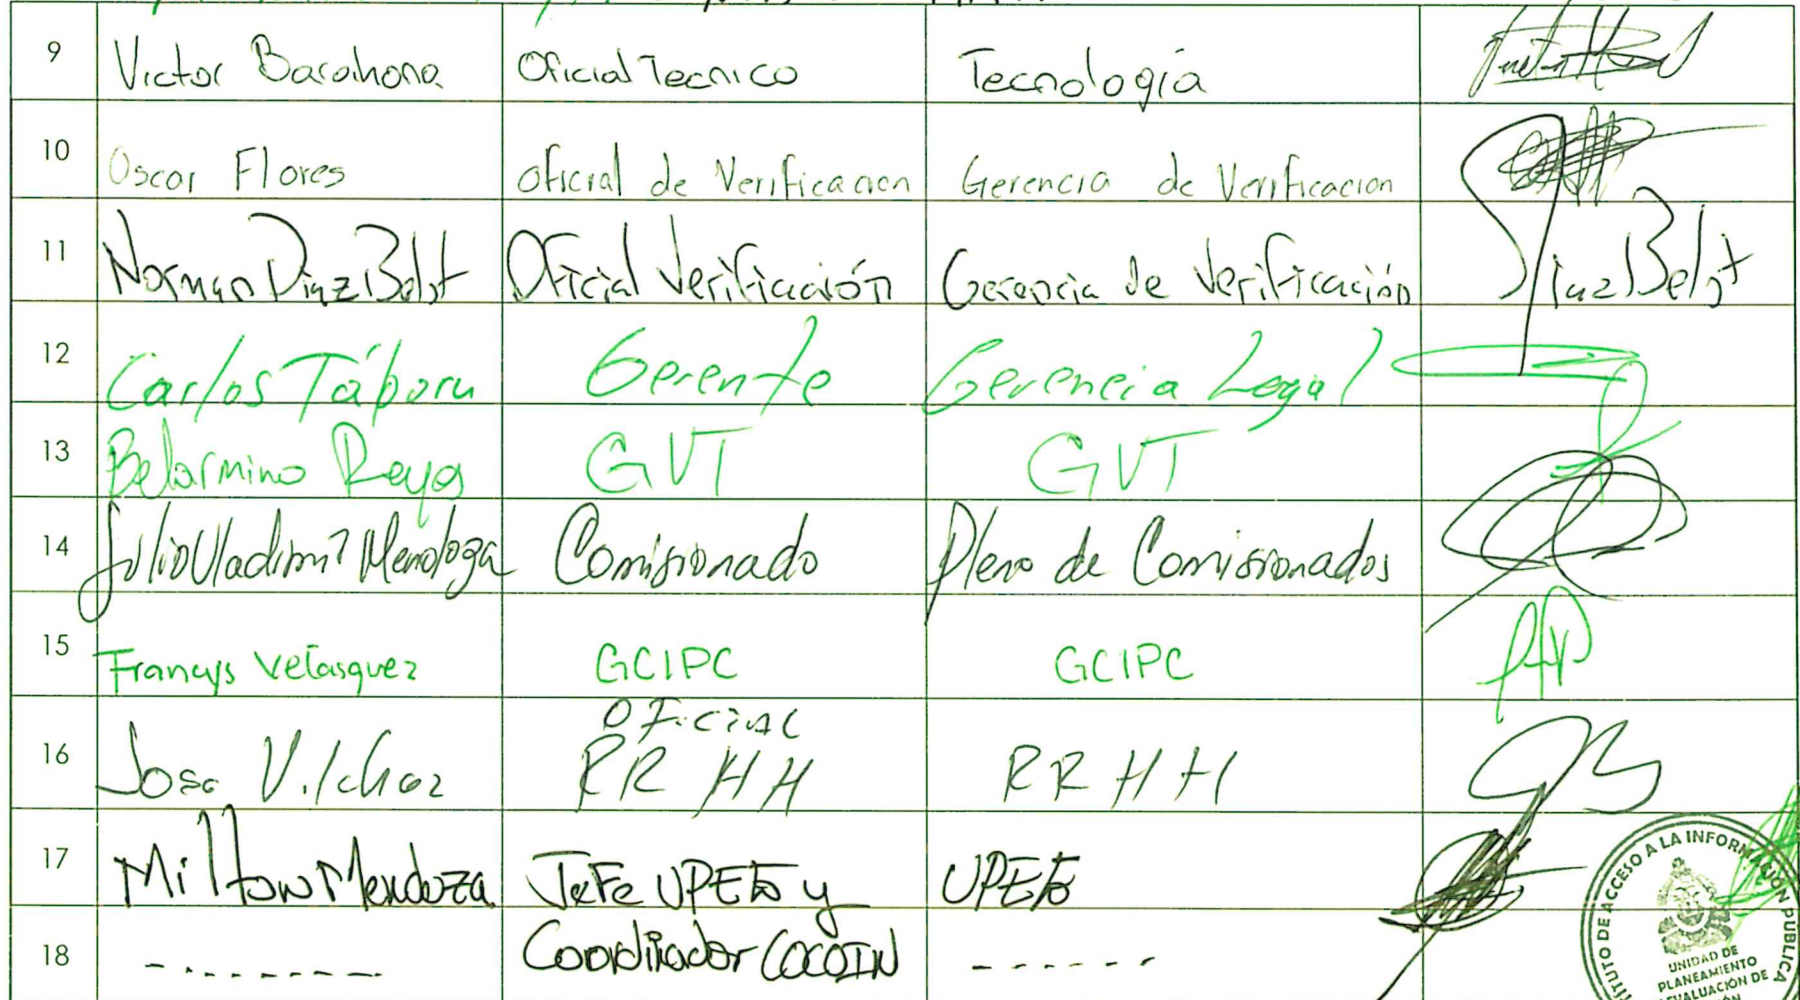 9 Victor Barahona Oficial Tecnico Tecnología
10 Oscar Flores Oficial de Verificacion Gerencia de Verificacion
11 Norman Diaz Belot Oficial Verificación Gerencia de Verificación Diaz Belot
12 Carlos Tábora Gerente Gerencia Legal
13 Belarmino Reyes GVT GVT
14 Julio Vladimir Mendoza Comisionado Pleno de Comisionados
15 Francys Velasquez GCIPC GCIPC
Oficial
16 Jose Vilchez RR HH RR HH
17 Milton Mendoza Jefe UPEG y UPEG
18 - - - - - - - - Coordinador COCOIN - - - - - -
TUTO DE ACCESO A LA INFORMACIÓN PUBLICA
UNIDAD DE
PLANEAMIENTO
EVALUACIÓN DE